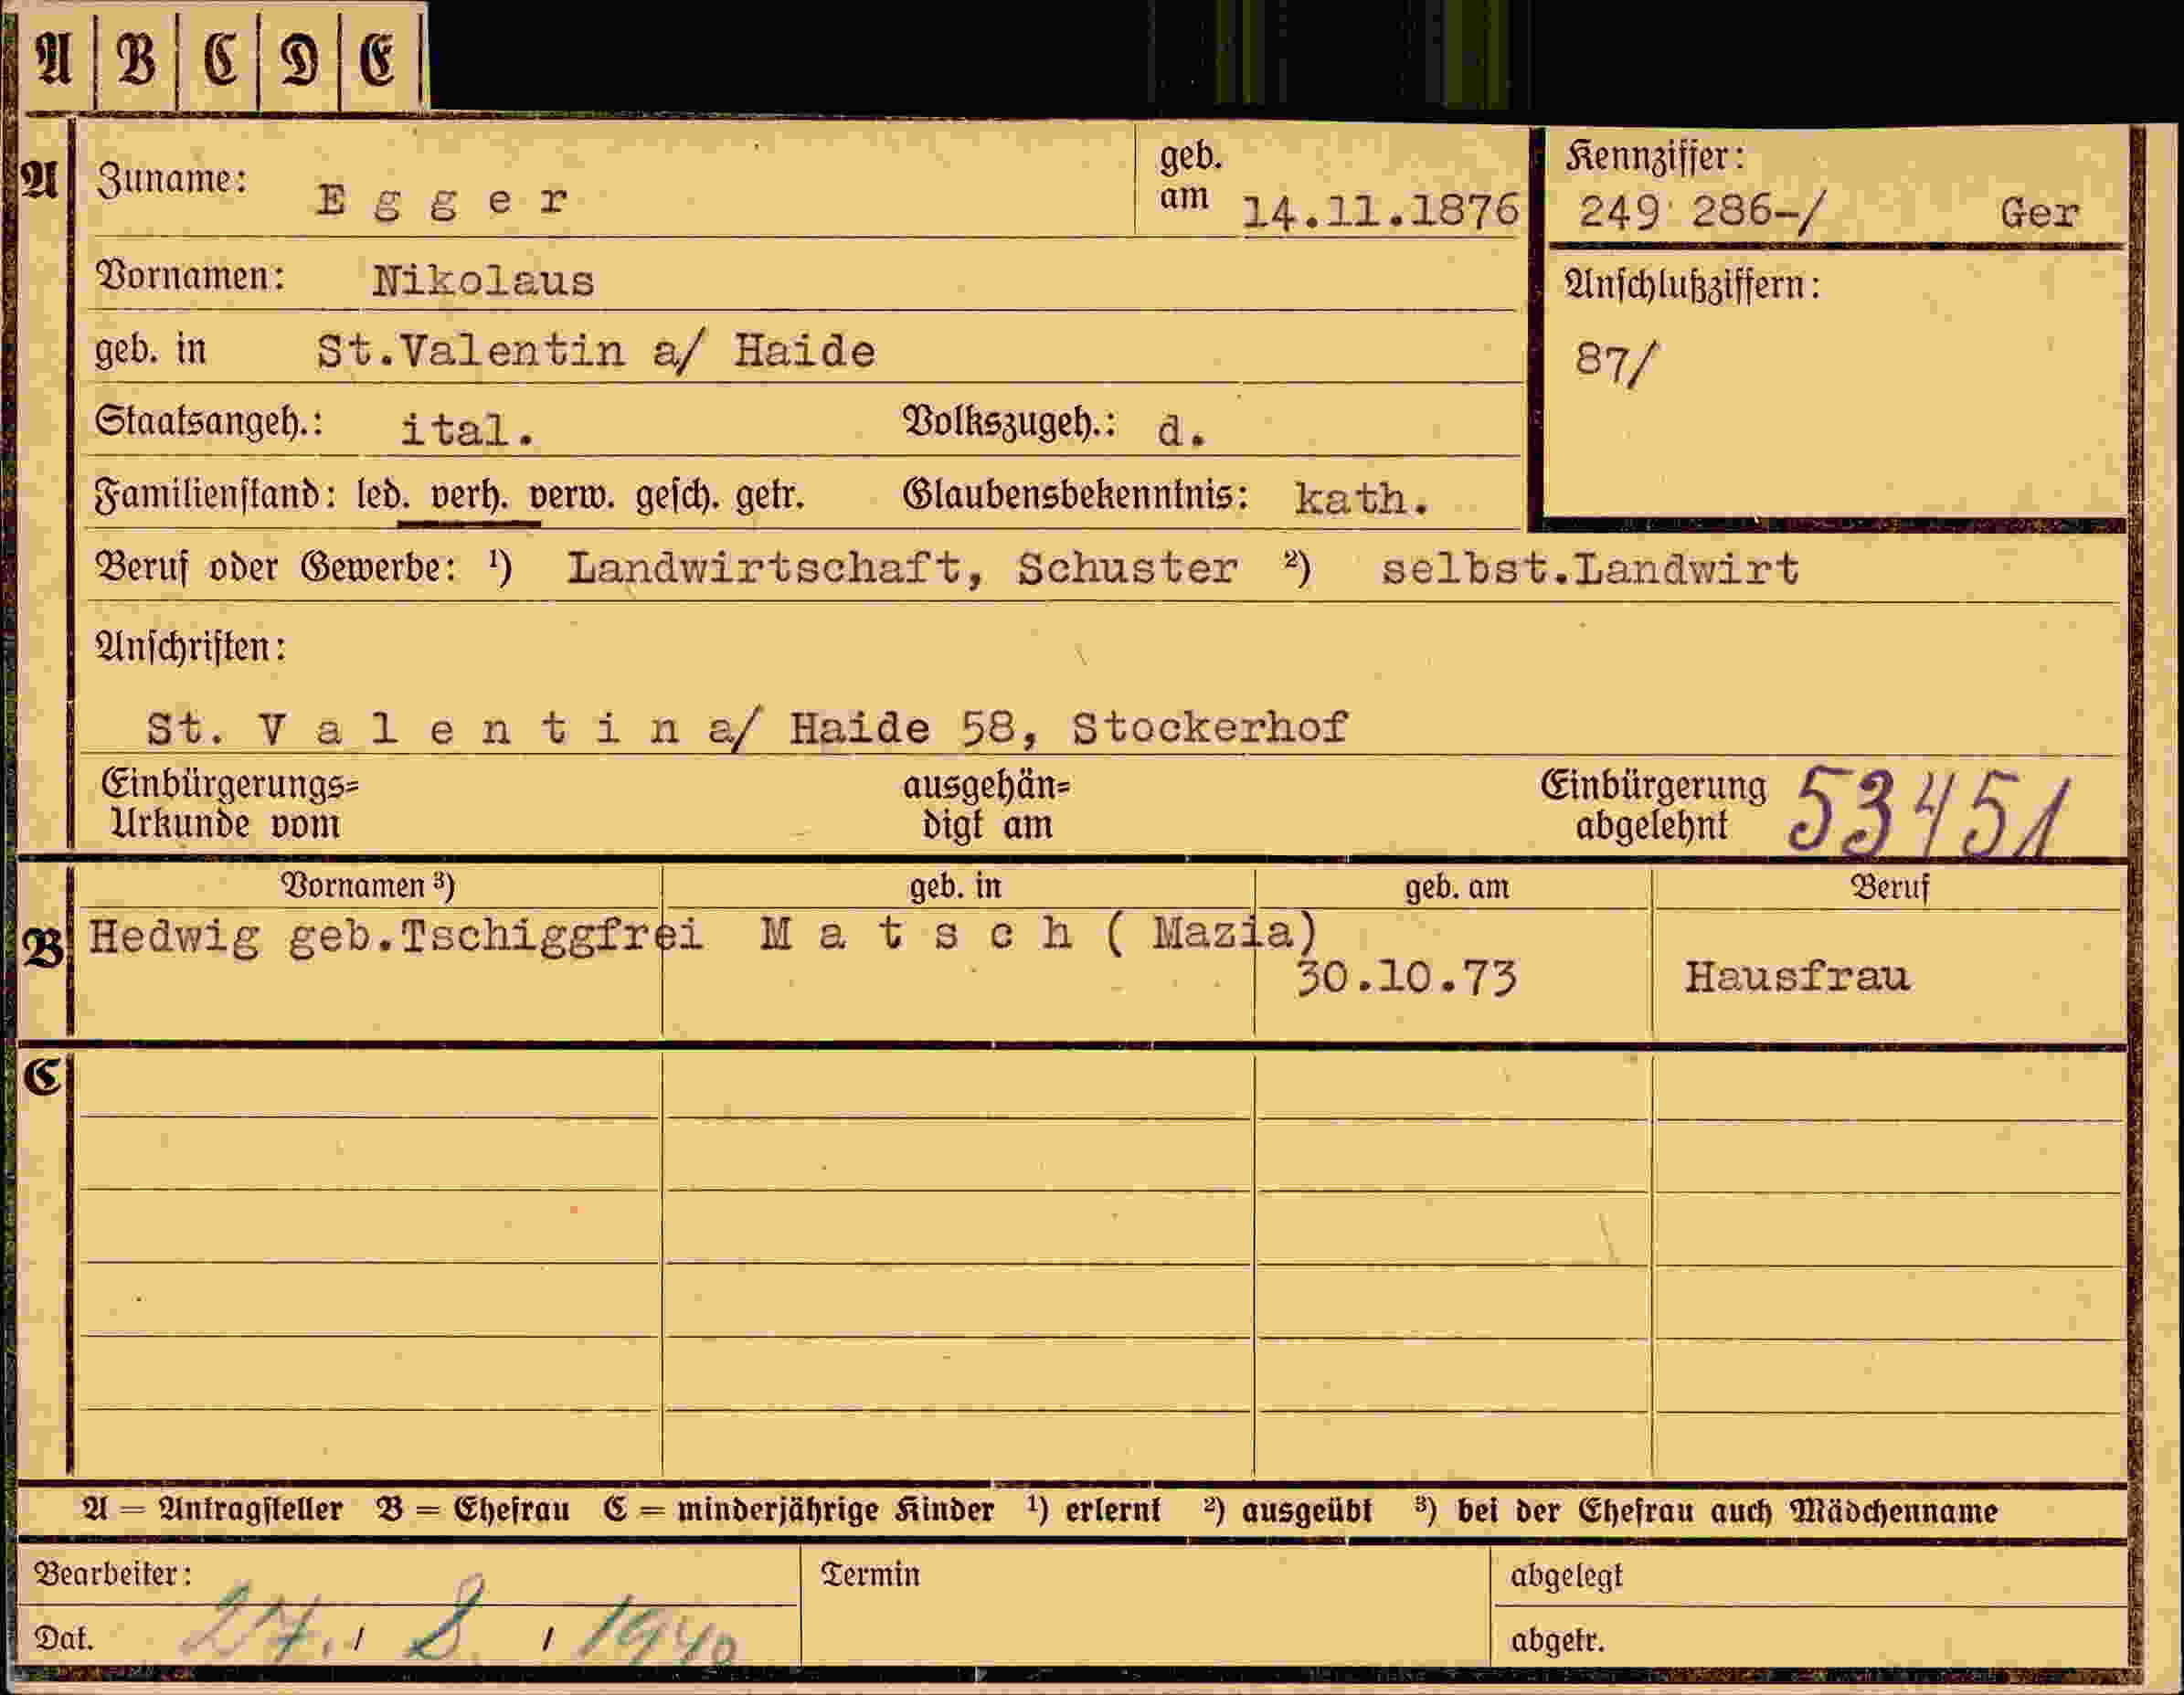 A B C D E
A Zuname: E g g e r geb. am 14.11.1876 Kennziffer: 249 286-/ Ger
Vornamen: Nikolaus Anschlußziffern:
geb. in St.Valentin a/ Haide 87/
Staatsangeh.: ital. Volkszugeh.: d.
Familienstand: led. verh. verw. gesch. getr. Glaubensbekenntnis: kath.
Beruf oder Gewerbe: ¹) Landwirtschaft, Schuster ²) selbst.Landwirt
Anschriften:
St. V a l e n t i n a/ Haide 58, Stockerhof
Einbürgerungs= ausgehän= Einbürgerung 53451
Urkunde vom digt am abgelehnt
Vornamen ³) geb. in geb. am Beruf
B Hedwig geb.Tschiggfrei M a t s c h ( Mazia)
30.10.73 Hausfrau
C
A = Antragsteller B = Ehefrau C = minderjährige Kinder ¹) erlernt ²) ausgeübt ³) bei der Ehefrau auch Mädchenname
Bearbeiter: Termin abgelegt
Dat. 27. / 8 / 1940 abgetr.